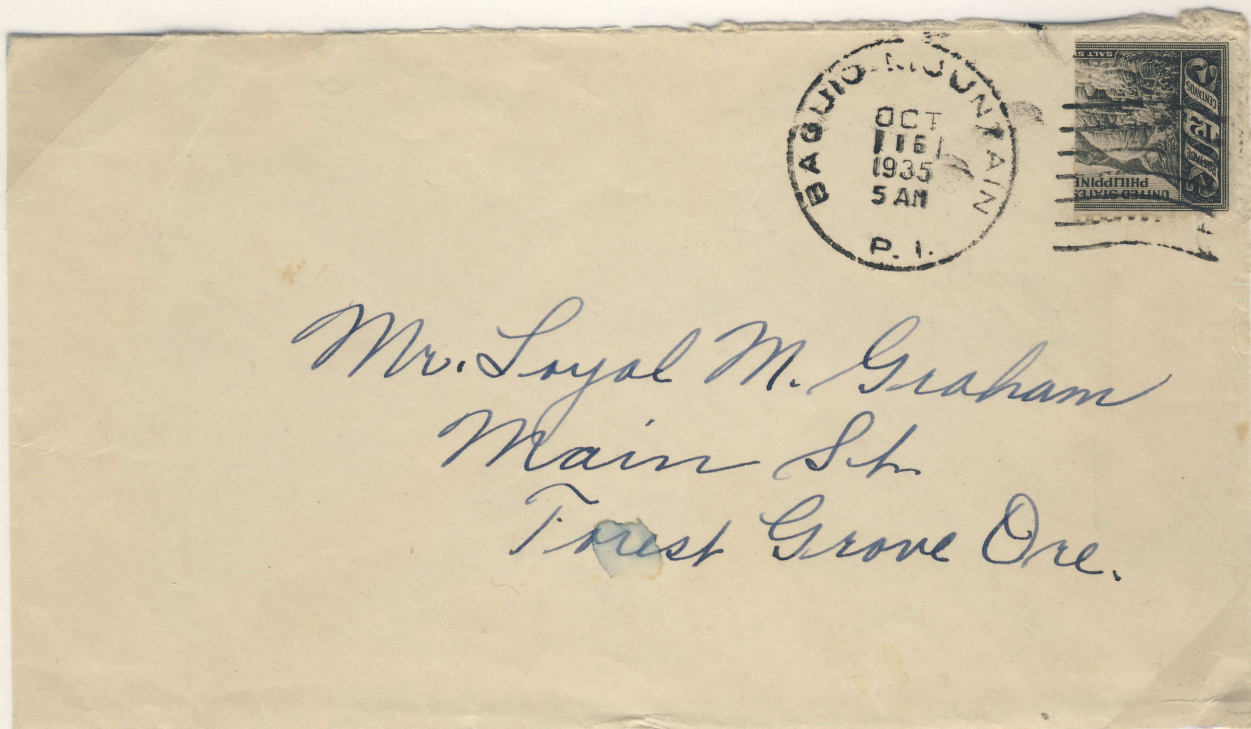 BAGUIO MOUNTAIN
OCT
16
1935
5 AM
P. I.
SALT S
CENTAVOS
12
UNITED STATES
PHILIPPINE
Mr. Loyal M. Graham
Main St.
Forest Grove Ore.